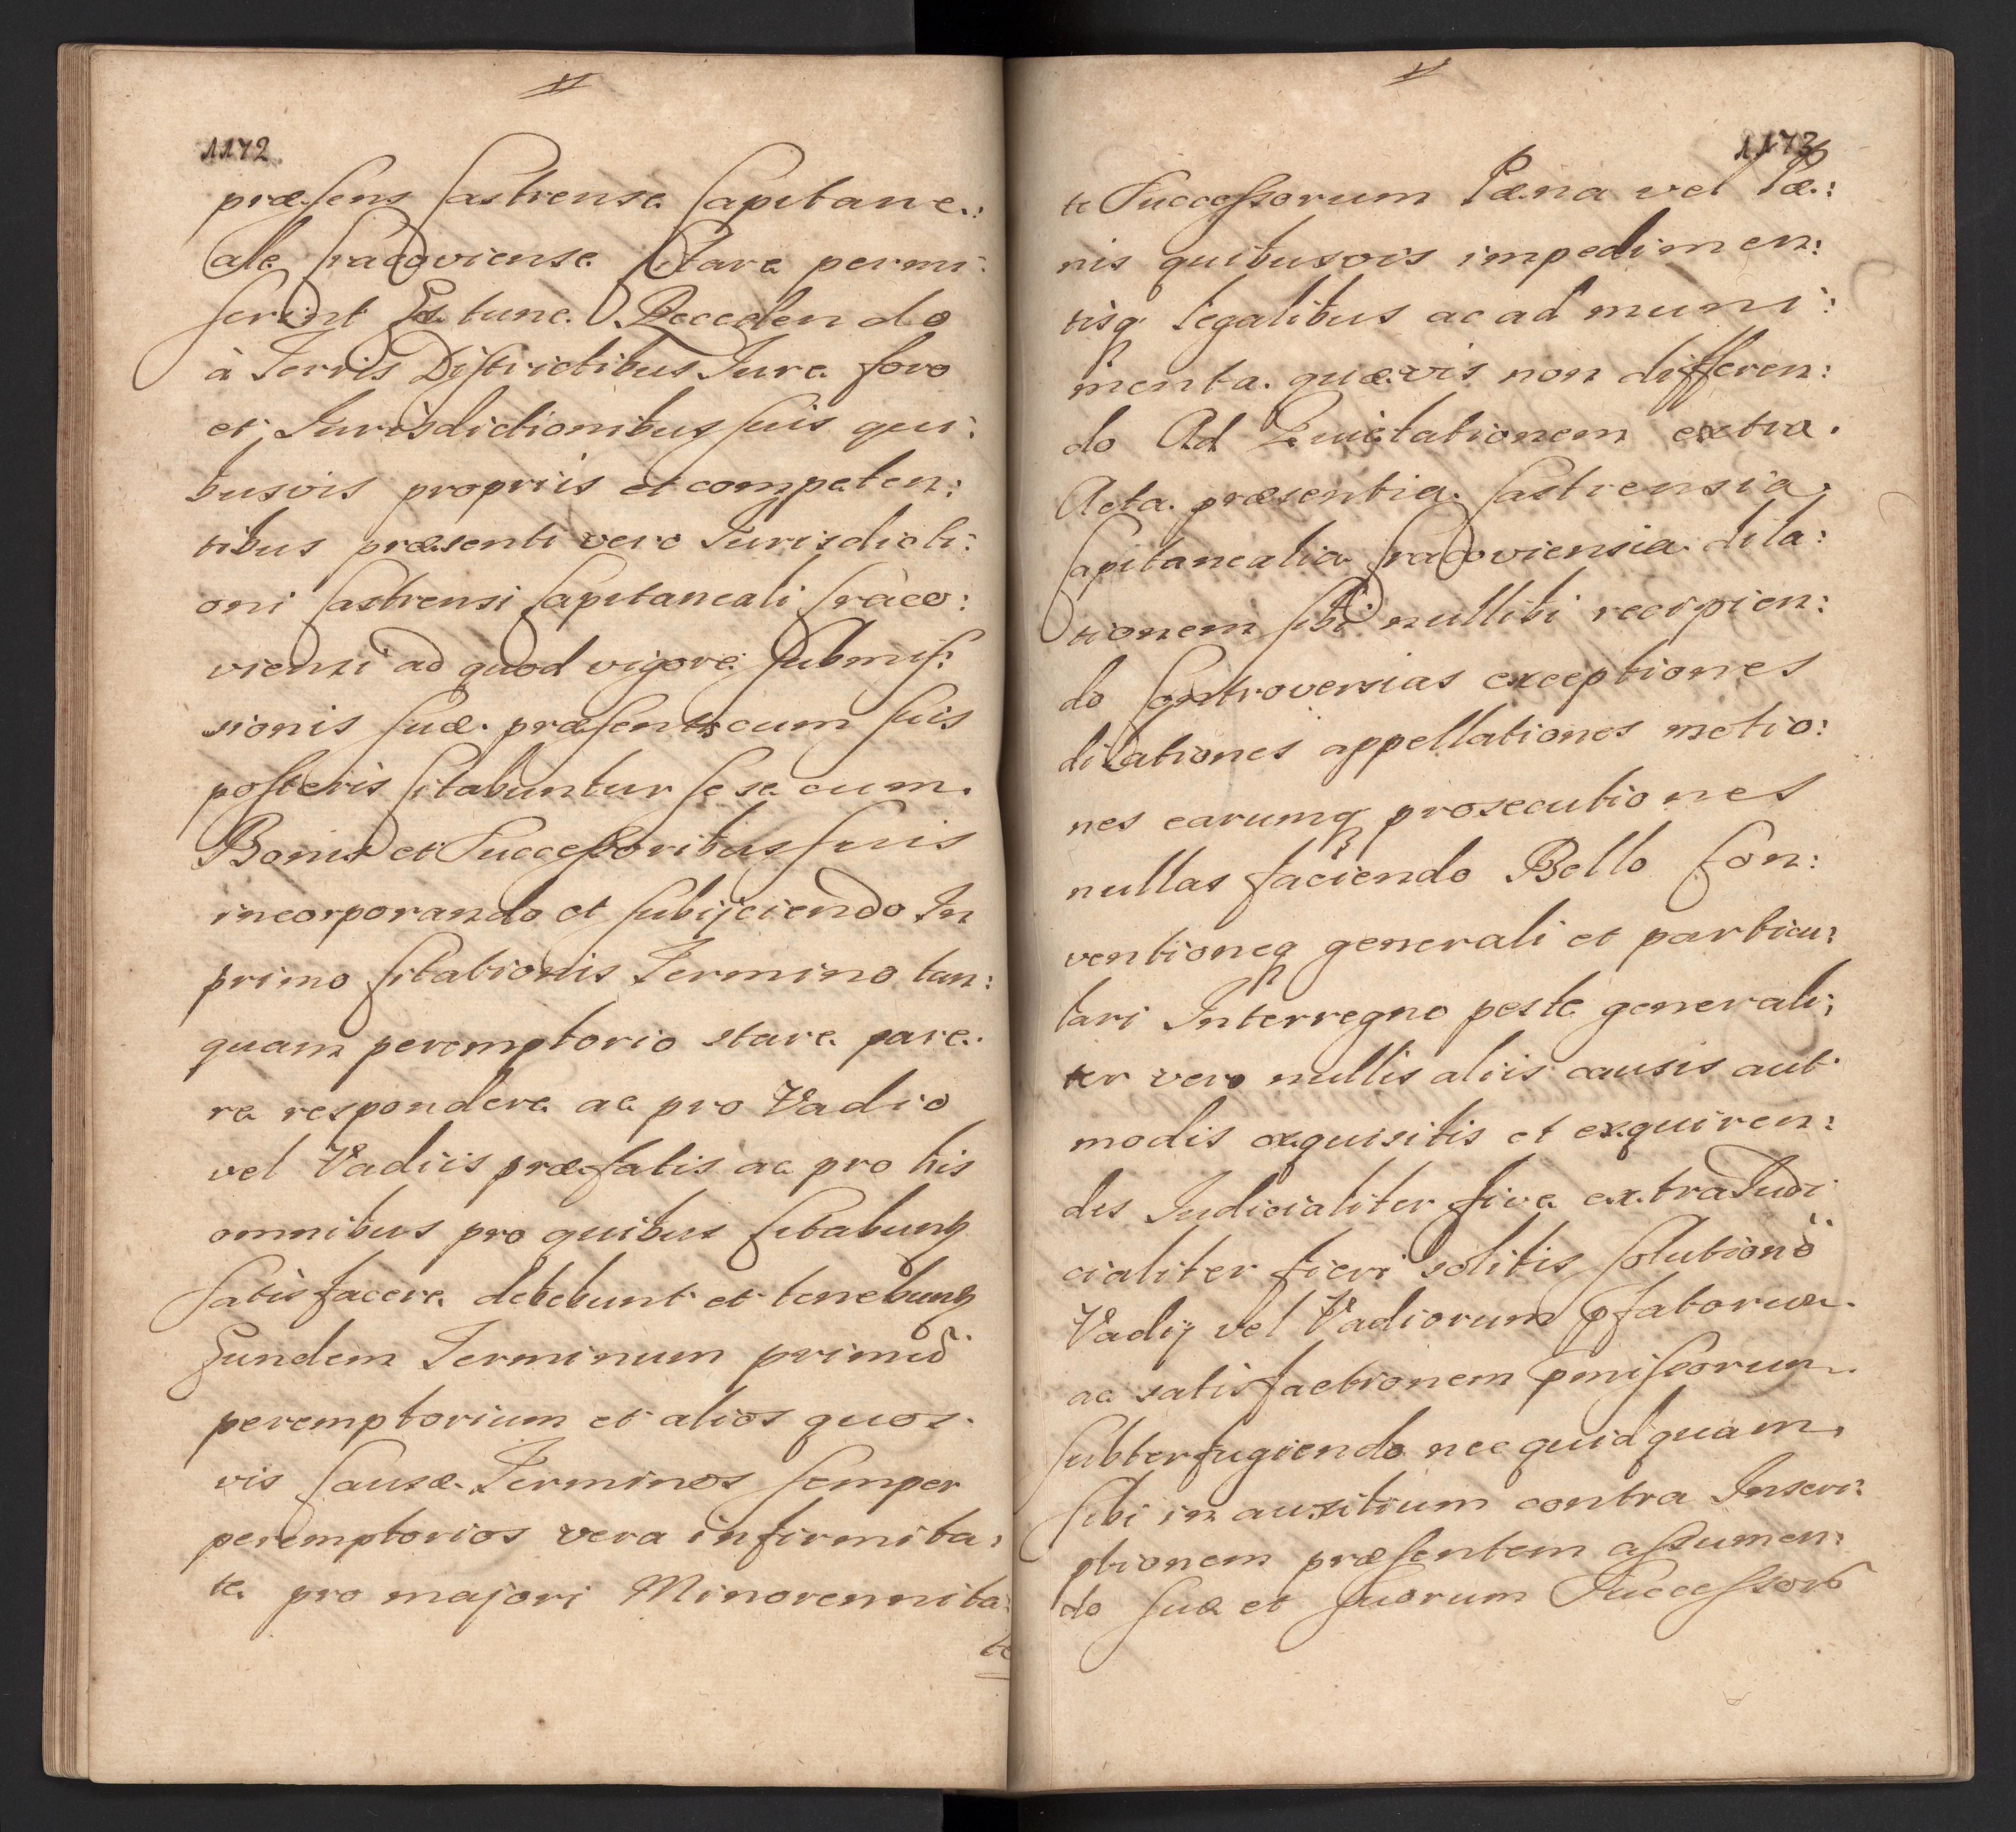 1172
præsens Castrense Capitane:
ale Cracoviense Citare permi:
serint Ex tunc Recedendo
à Terris Districtibus Jure foro
et Jurisdictionibus suis qui:
busvis propriis et competen:
tibus præsenti vero Jurisdicti:
oni Castrensi Capitaneali Craco:
viensi ad quod vigore Submis:
sionis suæ præsentis cum suis
posteris Citabuntur sese cum
Bonis et Successoribus suis
incorporando et subijciendo In
primo Citationis Termino tan:
quam peremptorio stare pare:
re respondere ac pro Vadio
vel Vadiis præfatis ac pro his
omnibus pro quibus Citabunt
satisfacere debebunt et tenebunt
Eundem Terminum primũ
peremptorium et alios quos
vis Causæ Terminos semper
peremptorios vera infirmita:
te pro majori Minorennita:
te
1173
te Successorum Pæna vel Pæ:
nis quibusvis impedimen:
tisq legalibus ac ad muni:
menta quævis non differen:
do Ad Quietationem extra
Acta præsentia Castrensia
Capitanealia Cracoviensia dila:
tionem sibi nullibi recipien:
do Controversias exceptiones
dilationes appellationes motio:
nes earumq prosecutiones
nullas faciendo Bello Con:
ventioneq generali et particu:
lari Interregno peste generali:
ter vero nullis aliis causis aut
modis exquisitis et exquiren:
dis Judicialiter sive extraJudi
cialiter fieri solitis solutionẽ
Vadij vel Vadiorum pfatorum
ac satisfactionem pmissorum
subterfugiendo nec quidquam
sibi in auxilium contra Inscri:
ptionem præsentem assumen:
do suæ et suorum Successorũ